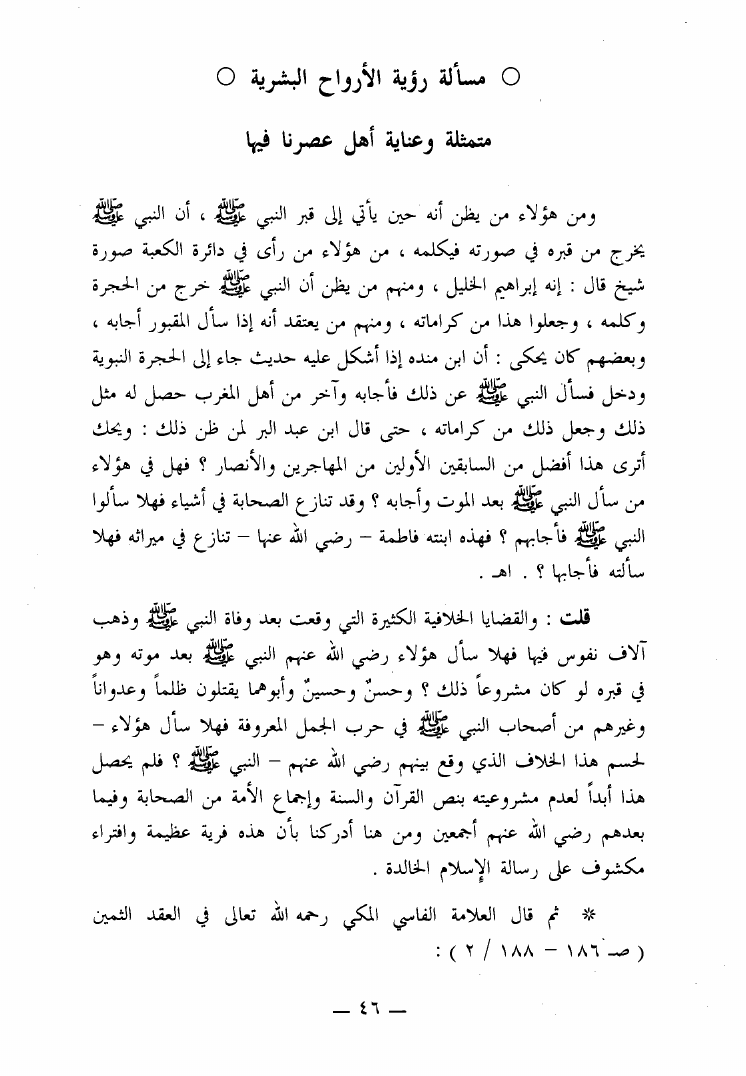 ○ مسألة رؤية الأرواح البشرية ○
متمثلة وعناية أهل عصرنا فيها
ومن هؤلاء من يظن أنه حين يأتي إلى قبر النبي ﷺ ، أن النبي ﷺ
يخرج من قبره في صورته فيكلمه ، من هؤلاء من رأى في دائرة الكعبة صورة
شيخ قال : إنه إبراهيم الخليل ، ومنهم من يظن أن النبي ﷺ خرج من الحجرة
وكلمه ، وجعلوا هذا من كراماته ، ومنهم من يعتقد أنه إذا سأل المقبور أجابه ،
وبعضهم كان يحكى : أن ابن منده إذا أشكل عليه حديث جاء إلى الحجرة النبوية
ودخل فسأل النبي ﷺ عن ذلك فأجابه وآخر من أهل المغرب حصل له مثل
ذلك وجعل ذلك من كراماته ، حتى قال ابن عبد البر لمن ظن ذلك : ويحك
أترى هذا أفضل من السابقين الأولين من المهاجرين والأنصار ؟ فهل في هؤلاء
من سأل النبي ﷺ بعد الموت وأجابه ؟ وقد تنازع الصحابة في أشياء فهلا سألوا
النبي ﷺ فأجابهم ؟ فهذه ابنته فاطمة – رضي الله عنها – تنازع في ميراثه فهلا
سألته فأجابها ؟ . اهـ .
قلت : والقضايا الخلافية الكثيرة التي وقعت بعد وفاة النبي ﷺ وذهب
آلاف نفوس فيها فهلا سأل هؤلاء رضي الله عنهم النبي ﷺ بعد موته وهو
في قبره لو كان مشروعاً ذلك ؟ وحسنٌ وحسينٌ وأبوهما يقتلون ظلماً وعدواناً
وغيرهم من أصحاب النبي ﷺ في حرب الجمل المعروفة فهلا سأل هؤلاء –
لحسم هذا الخلاف الذي وقع بينهم رضي الله عنهم – النبي ﷺ ؟ فلم يحصل
هذا أبداً لعدم مشروعيته بنص القرآن والسنة وإجماع الأمة من الصحابة وفيما
بعدهم رضي الله عنهم أجمعين ومن هنا أدركنا بأن هذه فرية عظيمة وافتراء
مكشوف على رسالة الإسلام الخالدة .
* ثم قال العلامة الفاسي المكي رحمه الله تعالى في العقد الثمين
( صـ ١٨٦ – ١٨٨ / ٢ ) :
— ٤٦ —